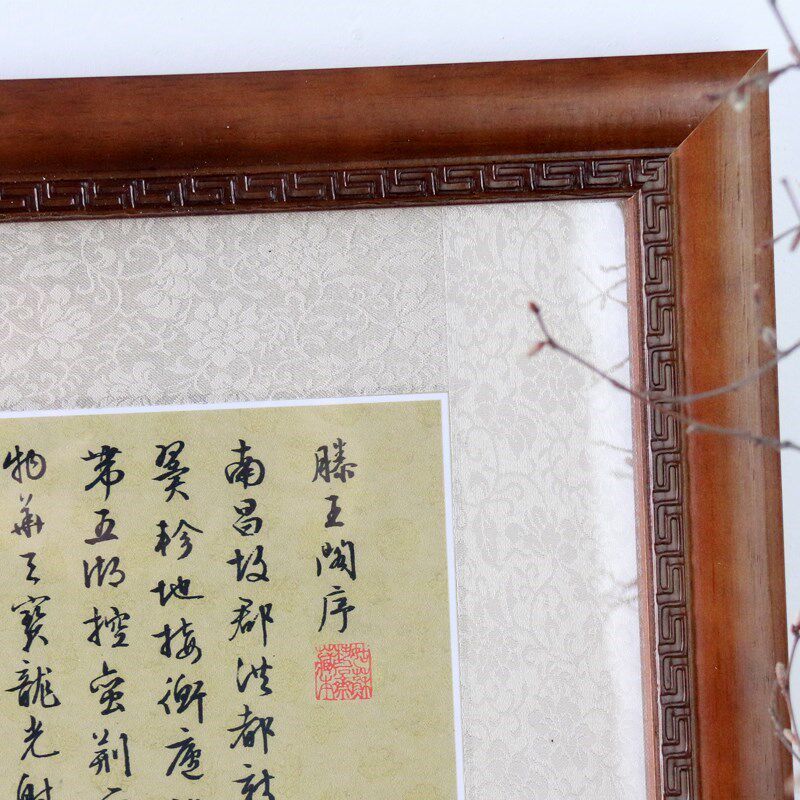 滕王閣序
南昌故郡洪都新
翼軫地接衡廬
帶五湖控蠻荊
物華天寶龍光射